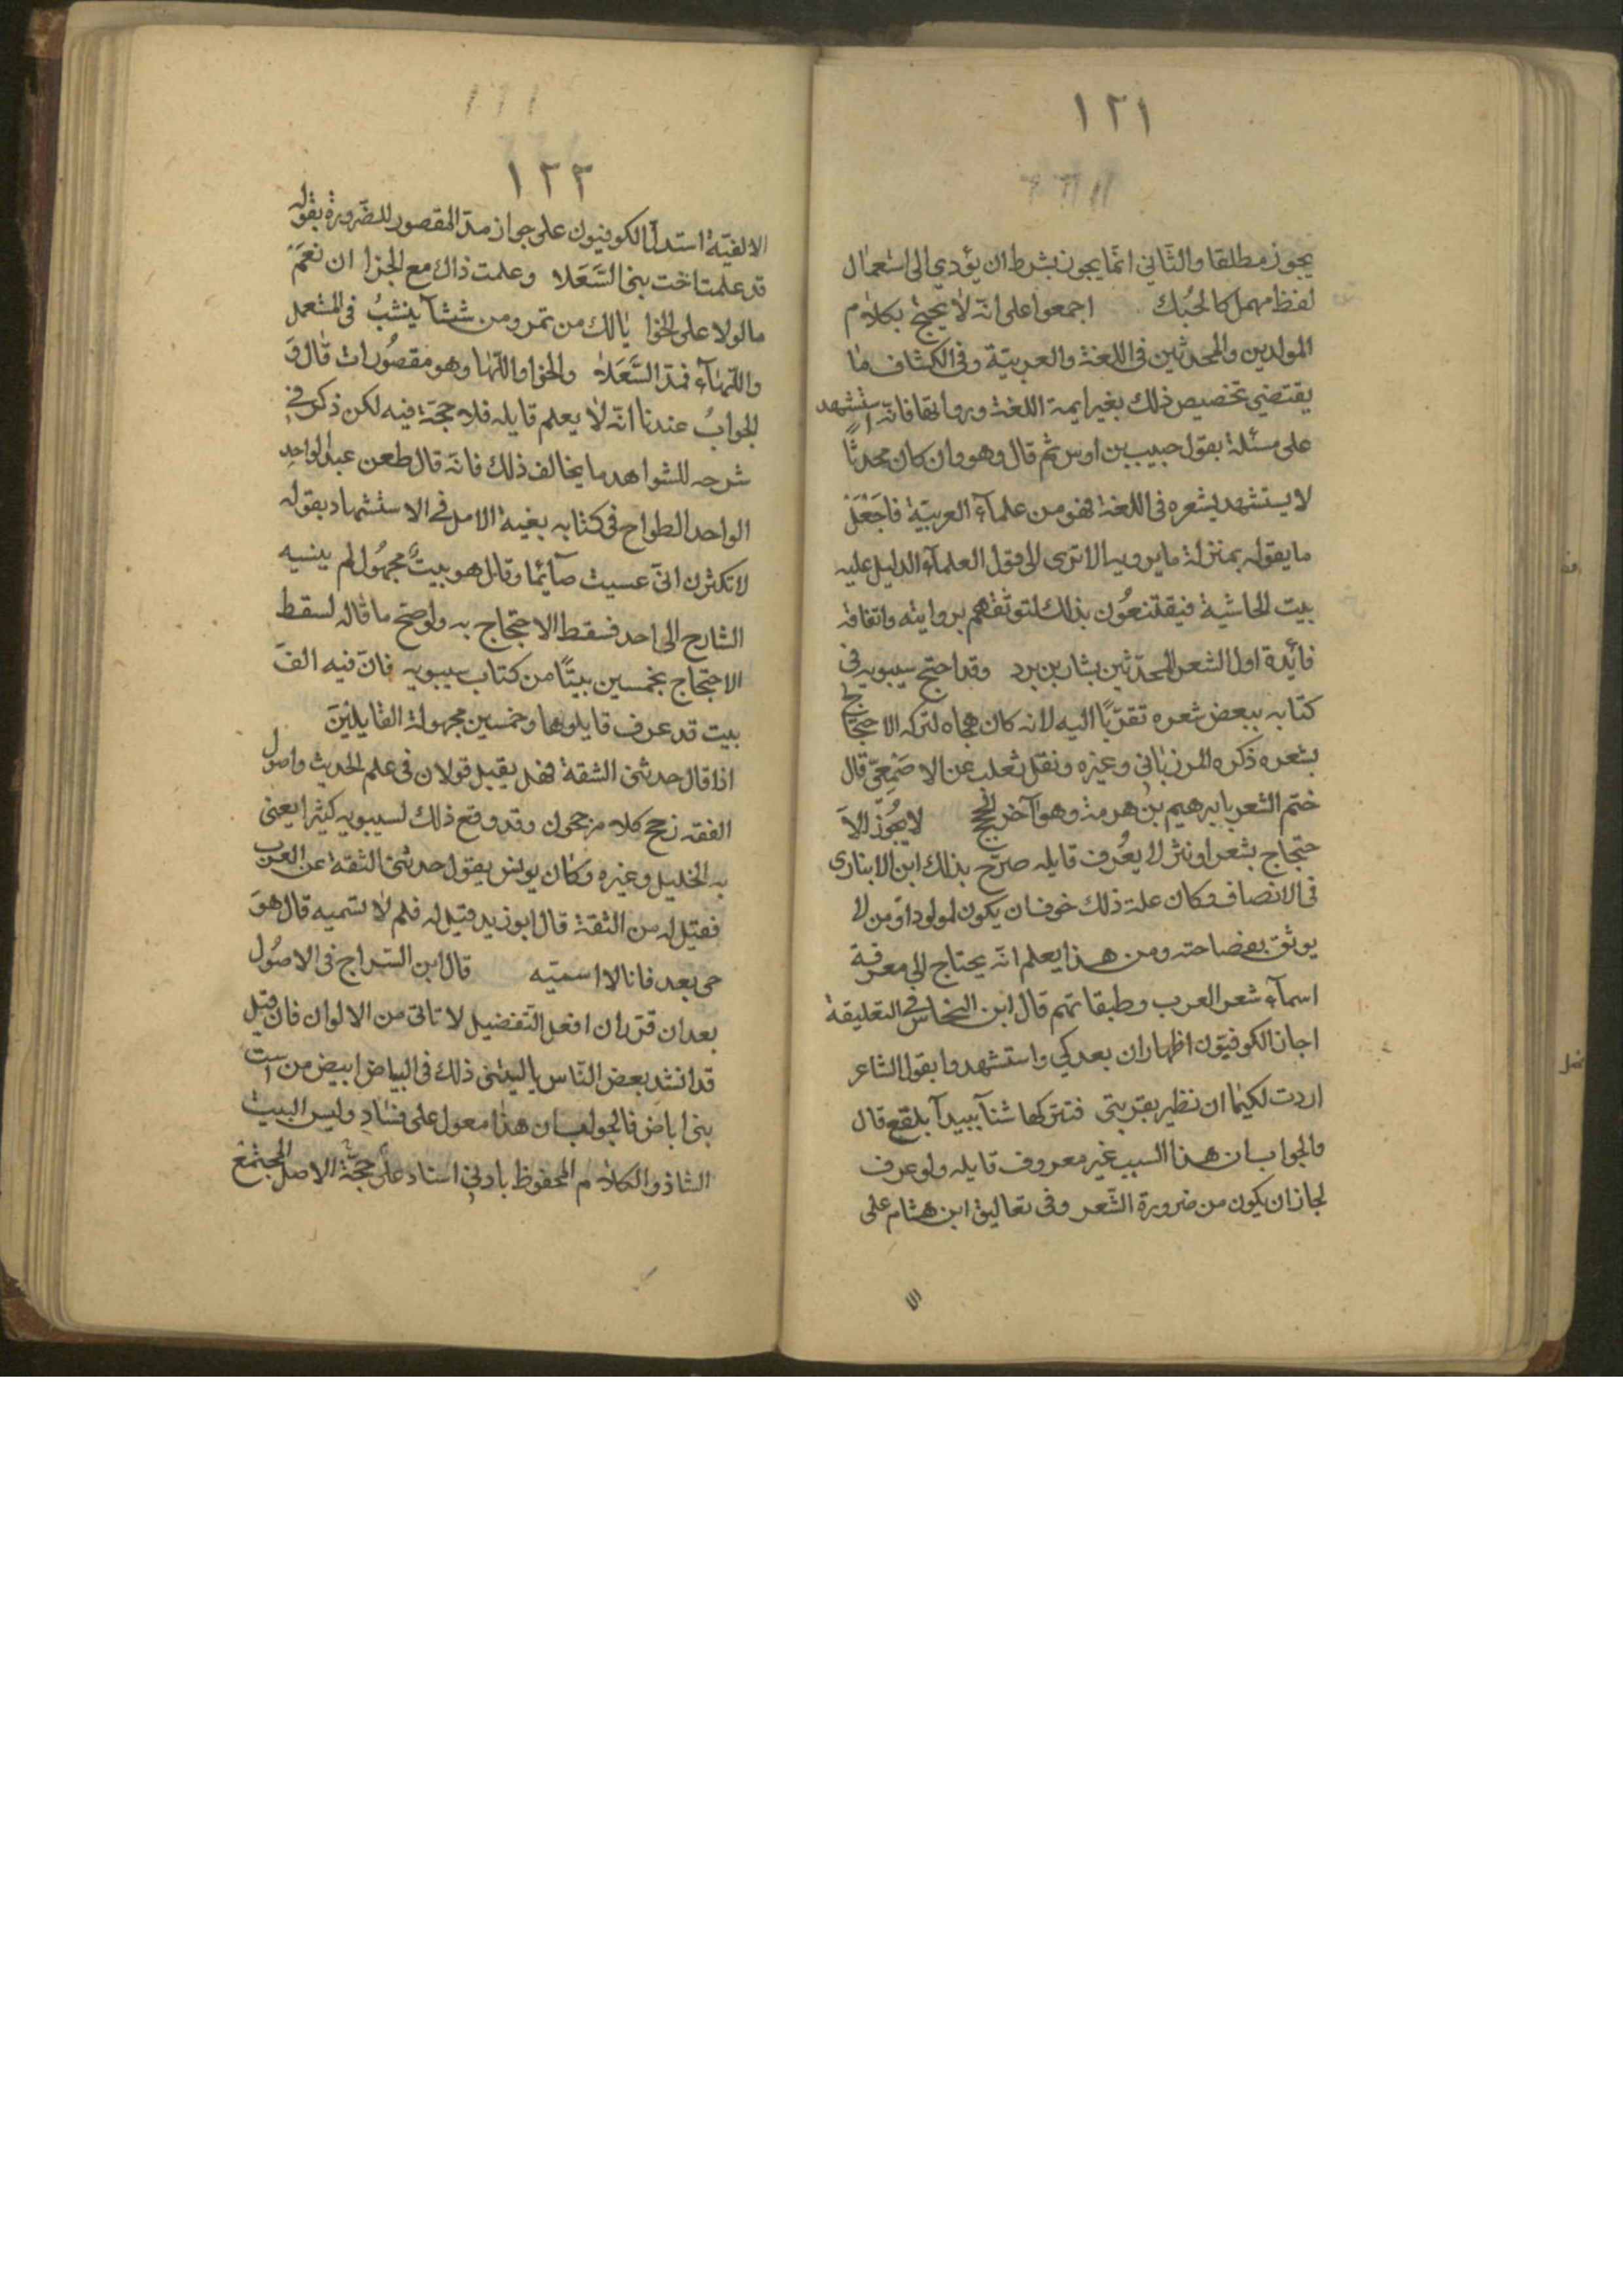 ١٢١
يجوز مطلقا والثّاني انّما يجوز بشرط ان يؤدي الى استعمال
لفظ مهمل كالحُبك اجمعوا على انّه لا يحتج بكلام
المولدين والمحدثين في اللغة والعربيّة وفي الكشاف ما
يقتضي تخصيص ذلك بغير ايمة اللغة ورواتها فانّه استشهد
على مسئلة بقول حبيب بن اوس ثم قال وهو وان كان محدثًا
لا يستشهد بشعره في اللغة فهو من علمآء العربيّة فاجَعَلَ
ما يقوله بمنزلة ما يرويه الا ترى الى قول العلمآء الدليل عليه
بيت الحاشية فيقتنعُون بذلك لتوثقهم بروايته واتقانه
فائدة اول الشعر المحدّثين بشار بن برد وقد احتج سيبويه في
كتابه ببعض شعره تقرّبًا اليه لانه كان هجاه لتركه الاحتجاج
بشعره ذكره المرزباني وغيره ونقل ثعلب عن الاصَمِعيّ قال
ختم الشعر بابرهيم بن هرمة وهو آخر الحجج لا يجُوزُ الاَ
حتجاج بشعر او نثر لا يعُرف قايله صرّح بذلك ابن الانباري
في الانصاف وكان علة ذلك خوف ان يكون لمولود او من لا
يوثق بفصاحته ومن هذا يعلم انّه يحتاج الى معرفة
اسمآء شعر العرب وطبقاتهم قال ابن النخاس في التعليقة
اجاز الكوفيّون اظهار ان بعد كي واستشهدوا بقول الشاعر
اردت لكيما ان تطير بقربتي فتتركها شنآ ببيدآ بلقع قال
والجواب ان هذا السبب غير معروف قايله ولو عرف
لجاز ان يكون من ضرورة الشّعر وفي تعاليق ابن هشام على
١٢٢
الالفيّة استدلّ الكوفيون على جواز مدّ المقصور للضّرورة بقوله
قد علمت اخت بني السَّعَلا وعلمت ذاك مع الجزا ان نعَمَ
مالولا على الخوا يالك من تمر ومن شيشآ ينشبُ في المشعل
واللّهآء فمدّ السَّعَلا والخوا واللّها وهو مقصُورات قال وَ
الجوابُ عندنا انّه لا يعلم قايله فلا حجّة فيه لكن ذكر في
شرحه للشواهد ما يخالف ذلك فانّه قال طعن عبد الواحدِ
الواحد الطواح في كتابه بغية الامل في الاستشهاد بقوله
لا تكثرن انّي عسيت صآئما وقال هو بيتٌ مجهُول لم ينسبه
الشارح الى احد فسقط الاحتجاج به ولو صح ما قاله لسقط
الاحتجاج بخمسين بيتًا من كتاب سيبويه فانّ فيه الفَ
بيت قد عرف قايلوها وخمسين مجهولة القايلينَ
اذا قال حدثني الثقة فهل يقبل قولان في علم الحديث واصُول
الفقه زجح كلا مزجحون وقد وقع ذلك لسيبويه كثيرا يعني
به الخليل وغيره وكان يونس يقول حدثني الثقة عن العرب
فقيل له من الثقة قال ابو زيد قيل له فلم لا تسميه قال هوَ
حي بعد فانا لا اسميّه قال ابن السّراج في الاصُول
بعد ان قرّر ان افعل التّفضيل لا تاتي من الالوان فان قيل
قد انشد بعض النّاس ياليتني ذلك في البياض ابيض من است
بني اباض فالجواب ان هذا معول على فسادِ وليس البيت
الشاذ والكلام المحفوظ بادنى اسناد على حجّة الاصل المجتمع